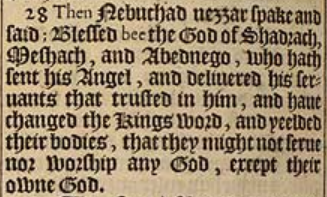 28 Then Nebuchad nezzar spake and
said; Blessed bee the God of Shadrach,
Meshach, and Abednego, who hath
sent his Angel, and deliuered his ser-
uants that trusted in him, and haue
changed the Kings word, and yeelded
their bodies, that they might not serue
nor worship any God, except their
owne God.